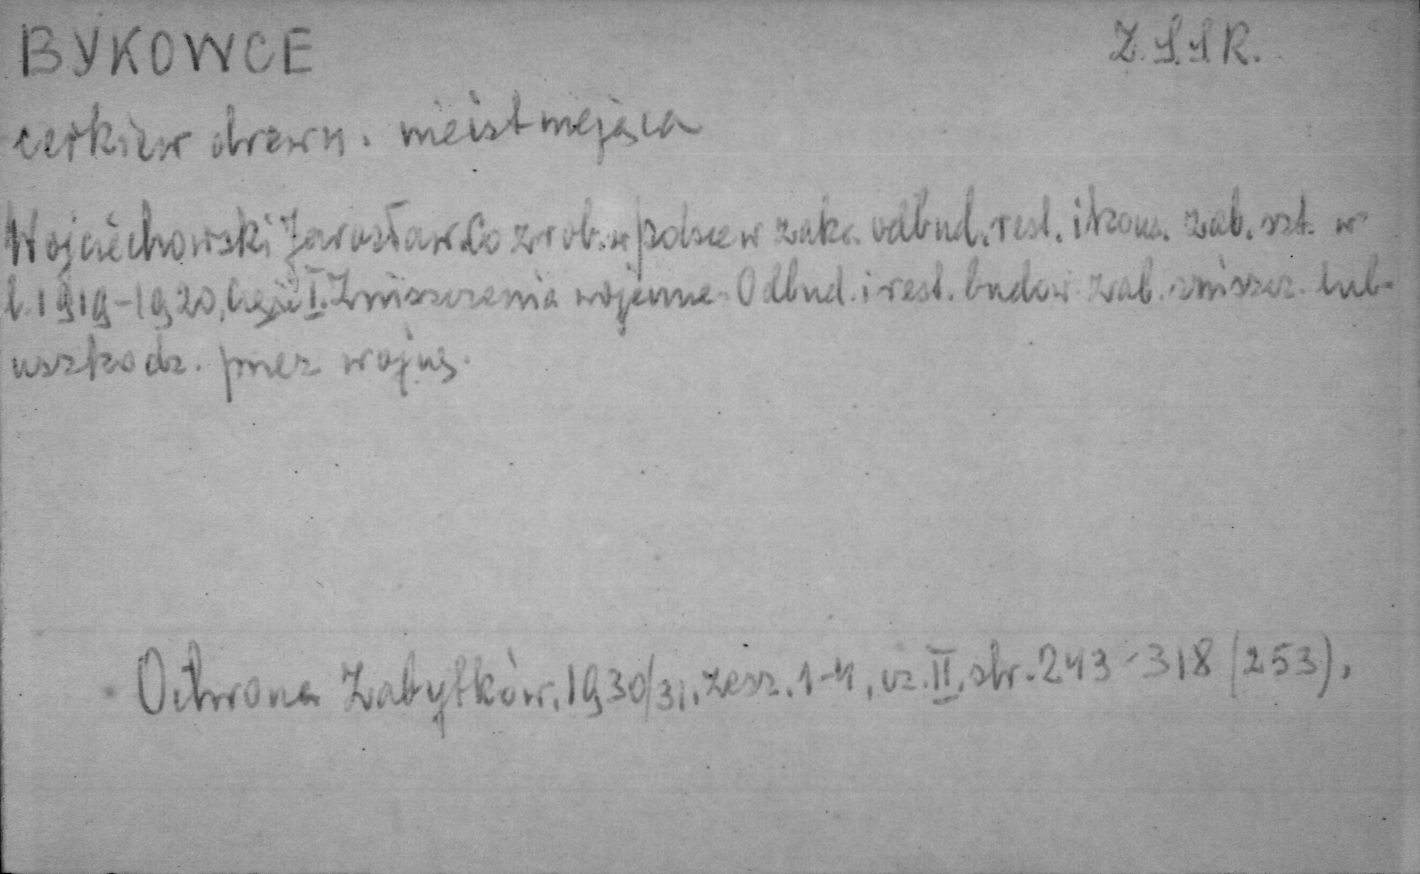 BYKOWCE
Z.S.S.R.
cerkiew drewn. nieistniejąca
Wojciechowski Jarosław. Co zrob. w Polsce w zakr. odbud., rest. i kons. zab. szt. w
l. 1919-1920, Część I. Zniszczenia wojenne. Odbud. i rest. budow. zab. zniszcz. lub
uszkodz. przez wojnę.
Ochrona Zabytków, 1930/31, zesz. 1-4, cz. II, str. 243-318 (253).